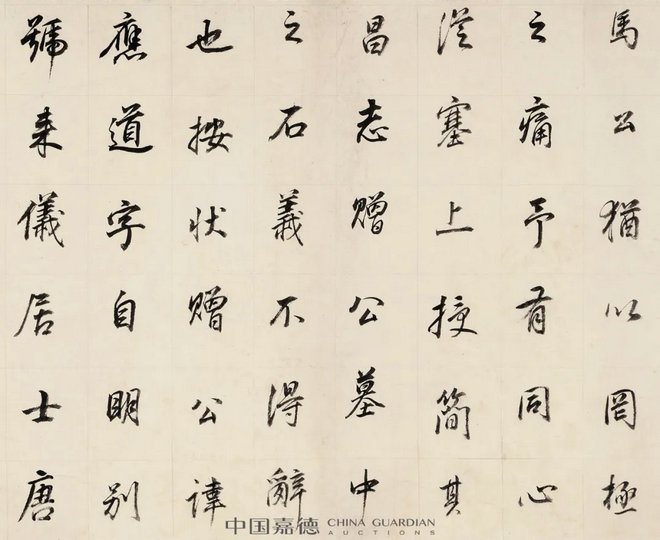 馬公猶以罔極
之痛予有同心
從塞上授簡其
昌志贈公墓中
之石義不得辭
也按狀贈公諱
應道字自明別
號來儀居士唐
中国嘉德 CHINA GUARDIAN
AUCTIONS